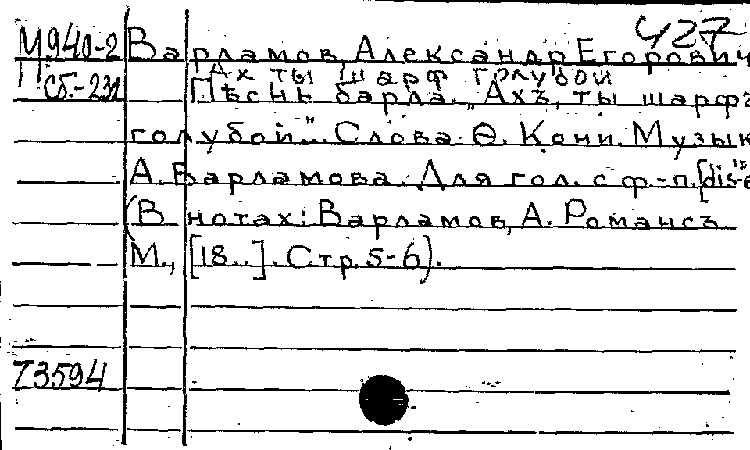 427
М940-2 Варламов, Александр Егорович
Ах ты шарф голубой
Сб.-231 Пѣснь барда. „Ахъ, ты шарфъ
голубой". Слова Ѳ. Кони. Музык
А. Варламова. Для гол. с ф.-п. [dis
(В нотах: Варламов, А. Романсъ
М., [18..]. Стр. 5-6).
73594